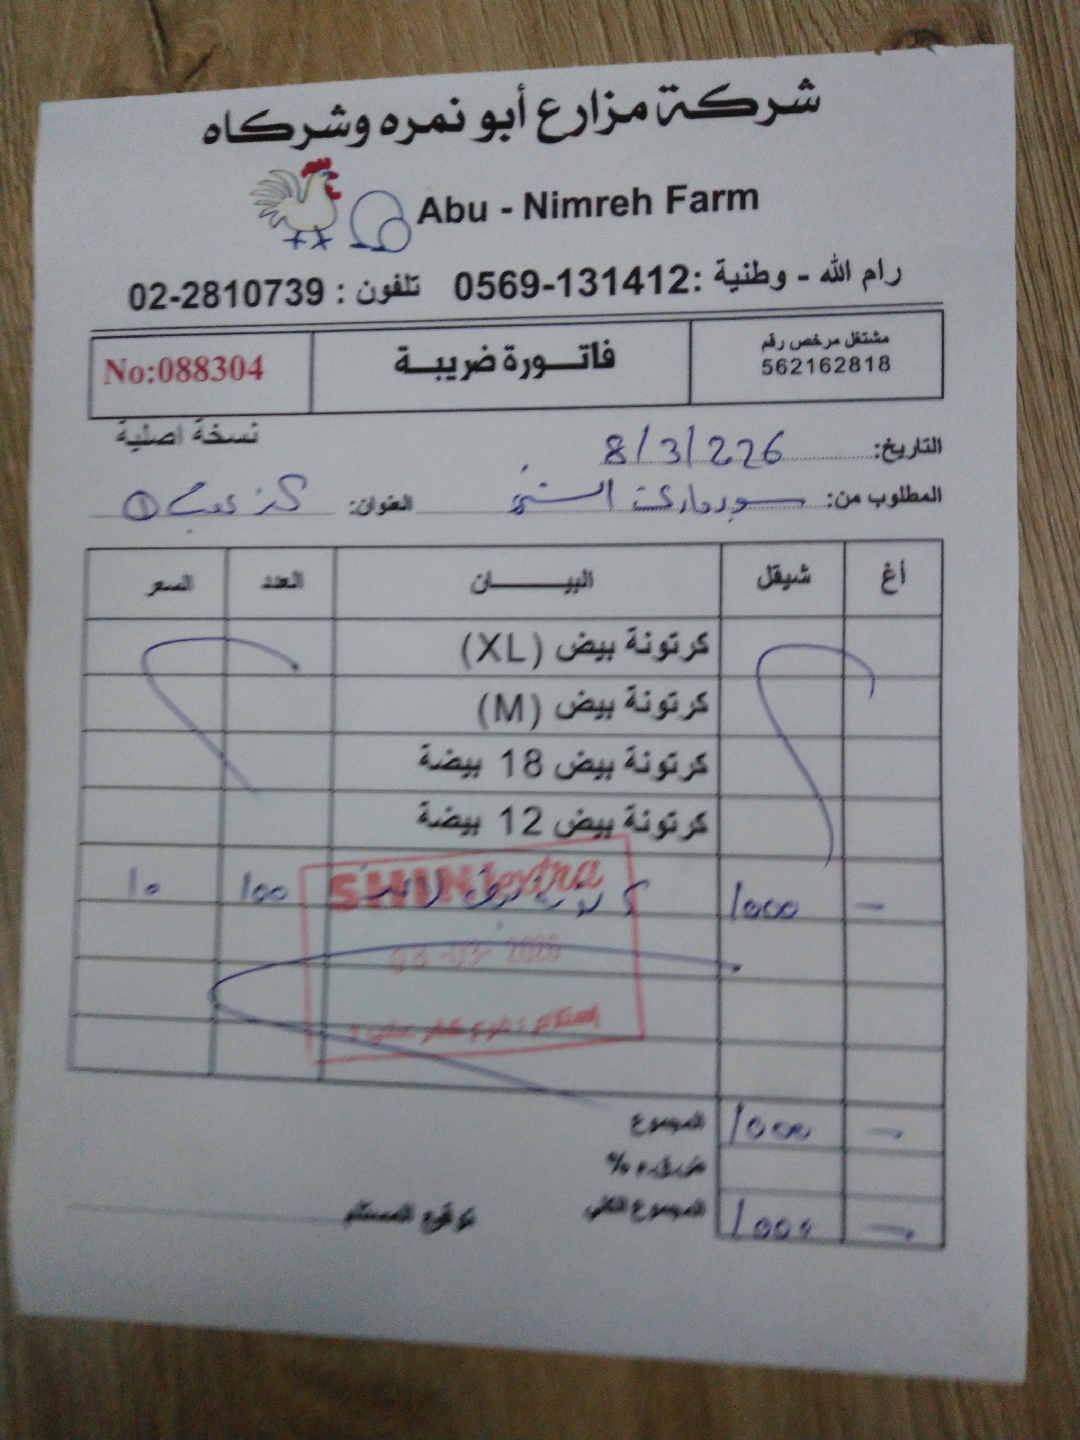 شركة مزارع أبو نمره وشركاه
Abu - Nimreh Farm
رام الله - وطنية :0569-131412 تلفون : 02-2810739
مشتغل مرخص رقم
562162818
فاتورة ضريبة
No:088304
نسخة اصلية
التاريخ: 8/3/226
المطلوب من: سوبرماركت الشني العنوان: كفر عقب 1
أغ شيقل البيان العدد السعر
كرتونة بيض (XL)
كرتونة بيض (M)
كرتونة بيض 18 بيضة
كرتونة بيض 12 بيضة
- 1000 100 10
SHINI extra
03-2026
المجموع 1000 -
ض.ق.م %
المجموع الكلي 1000 -
توقيع المستلم